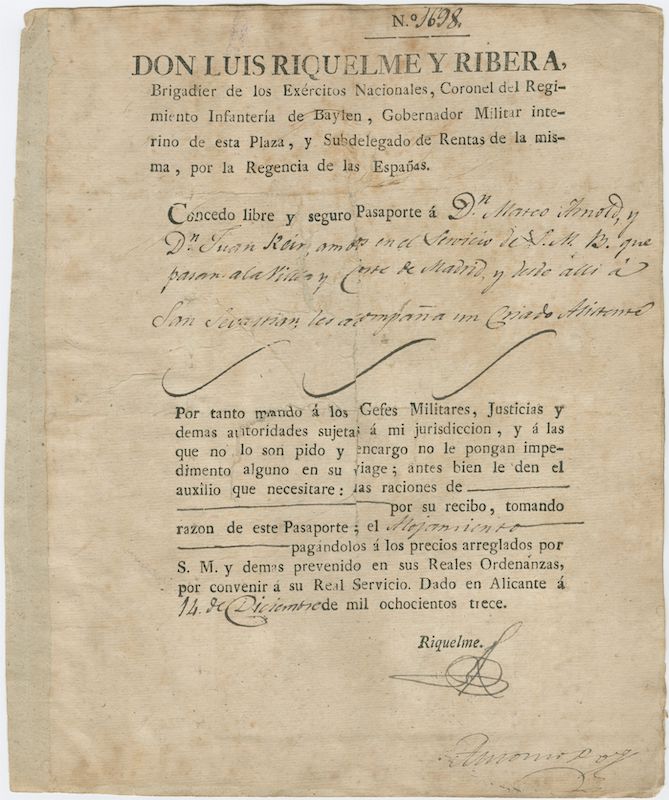 N.º 1698.
DON LUIS RIQUELME Y RIBERA,
Brigadier de los Exércitos Nacionales, Coronel del Regi-
miento Infantería de Baylen, Gobernador Militar inte-
rino de esta Plaza, y Subdelegado de Rentas de la mis-
ma, por la Regencia de las Españas.
Concedo libre y seguro Pasaporte á Dn. Marco Arnold, y
Dn. Juan Keir, ambos en el Servicio de S. M. B. que
pasan a la Villa y Corte de Madrid, y desde alli á
San Sevastian, les acompaña un Criado
Por tanto mando á los Gefes Militares, Justicias y
demas autoridades sujetas á mi jurisdiccion, y á las
que no lo son pido y encargo no le pongan impe-
dimento alguno en su viage; antes bien le den el
auxilio que necesitare: las raciones de
por su recibo, tomando
razon de este Pasaporte; el Alojamiento
pagándolos á los precios arreglados por
S. M. y demas prevenido en sus Reales Ordenanzas,
por convenir á su Real Servicio. Dado en Alicante á
14. de Diciembre de mil ochocientos trece.
Riquelme.
Antonio